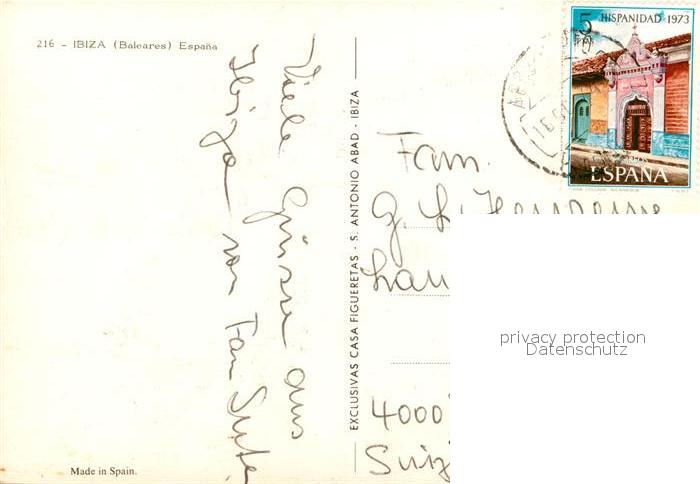 216 - IBIZA (Baleares) España
Viele Grüsse aus
Ibiza von Fam
Made in Spain.
EXCLUSIVAS CASA FIGUERETAS - S. ANTONIO ABAD - IBIZA
HISPANIDAD 1973
5
CORREOS
ESPAÑA
Fam.
G. L.
4000
privacy protection
Datenschutz